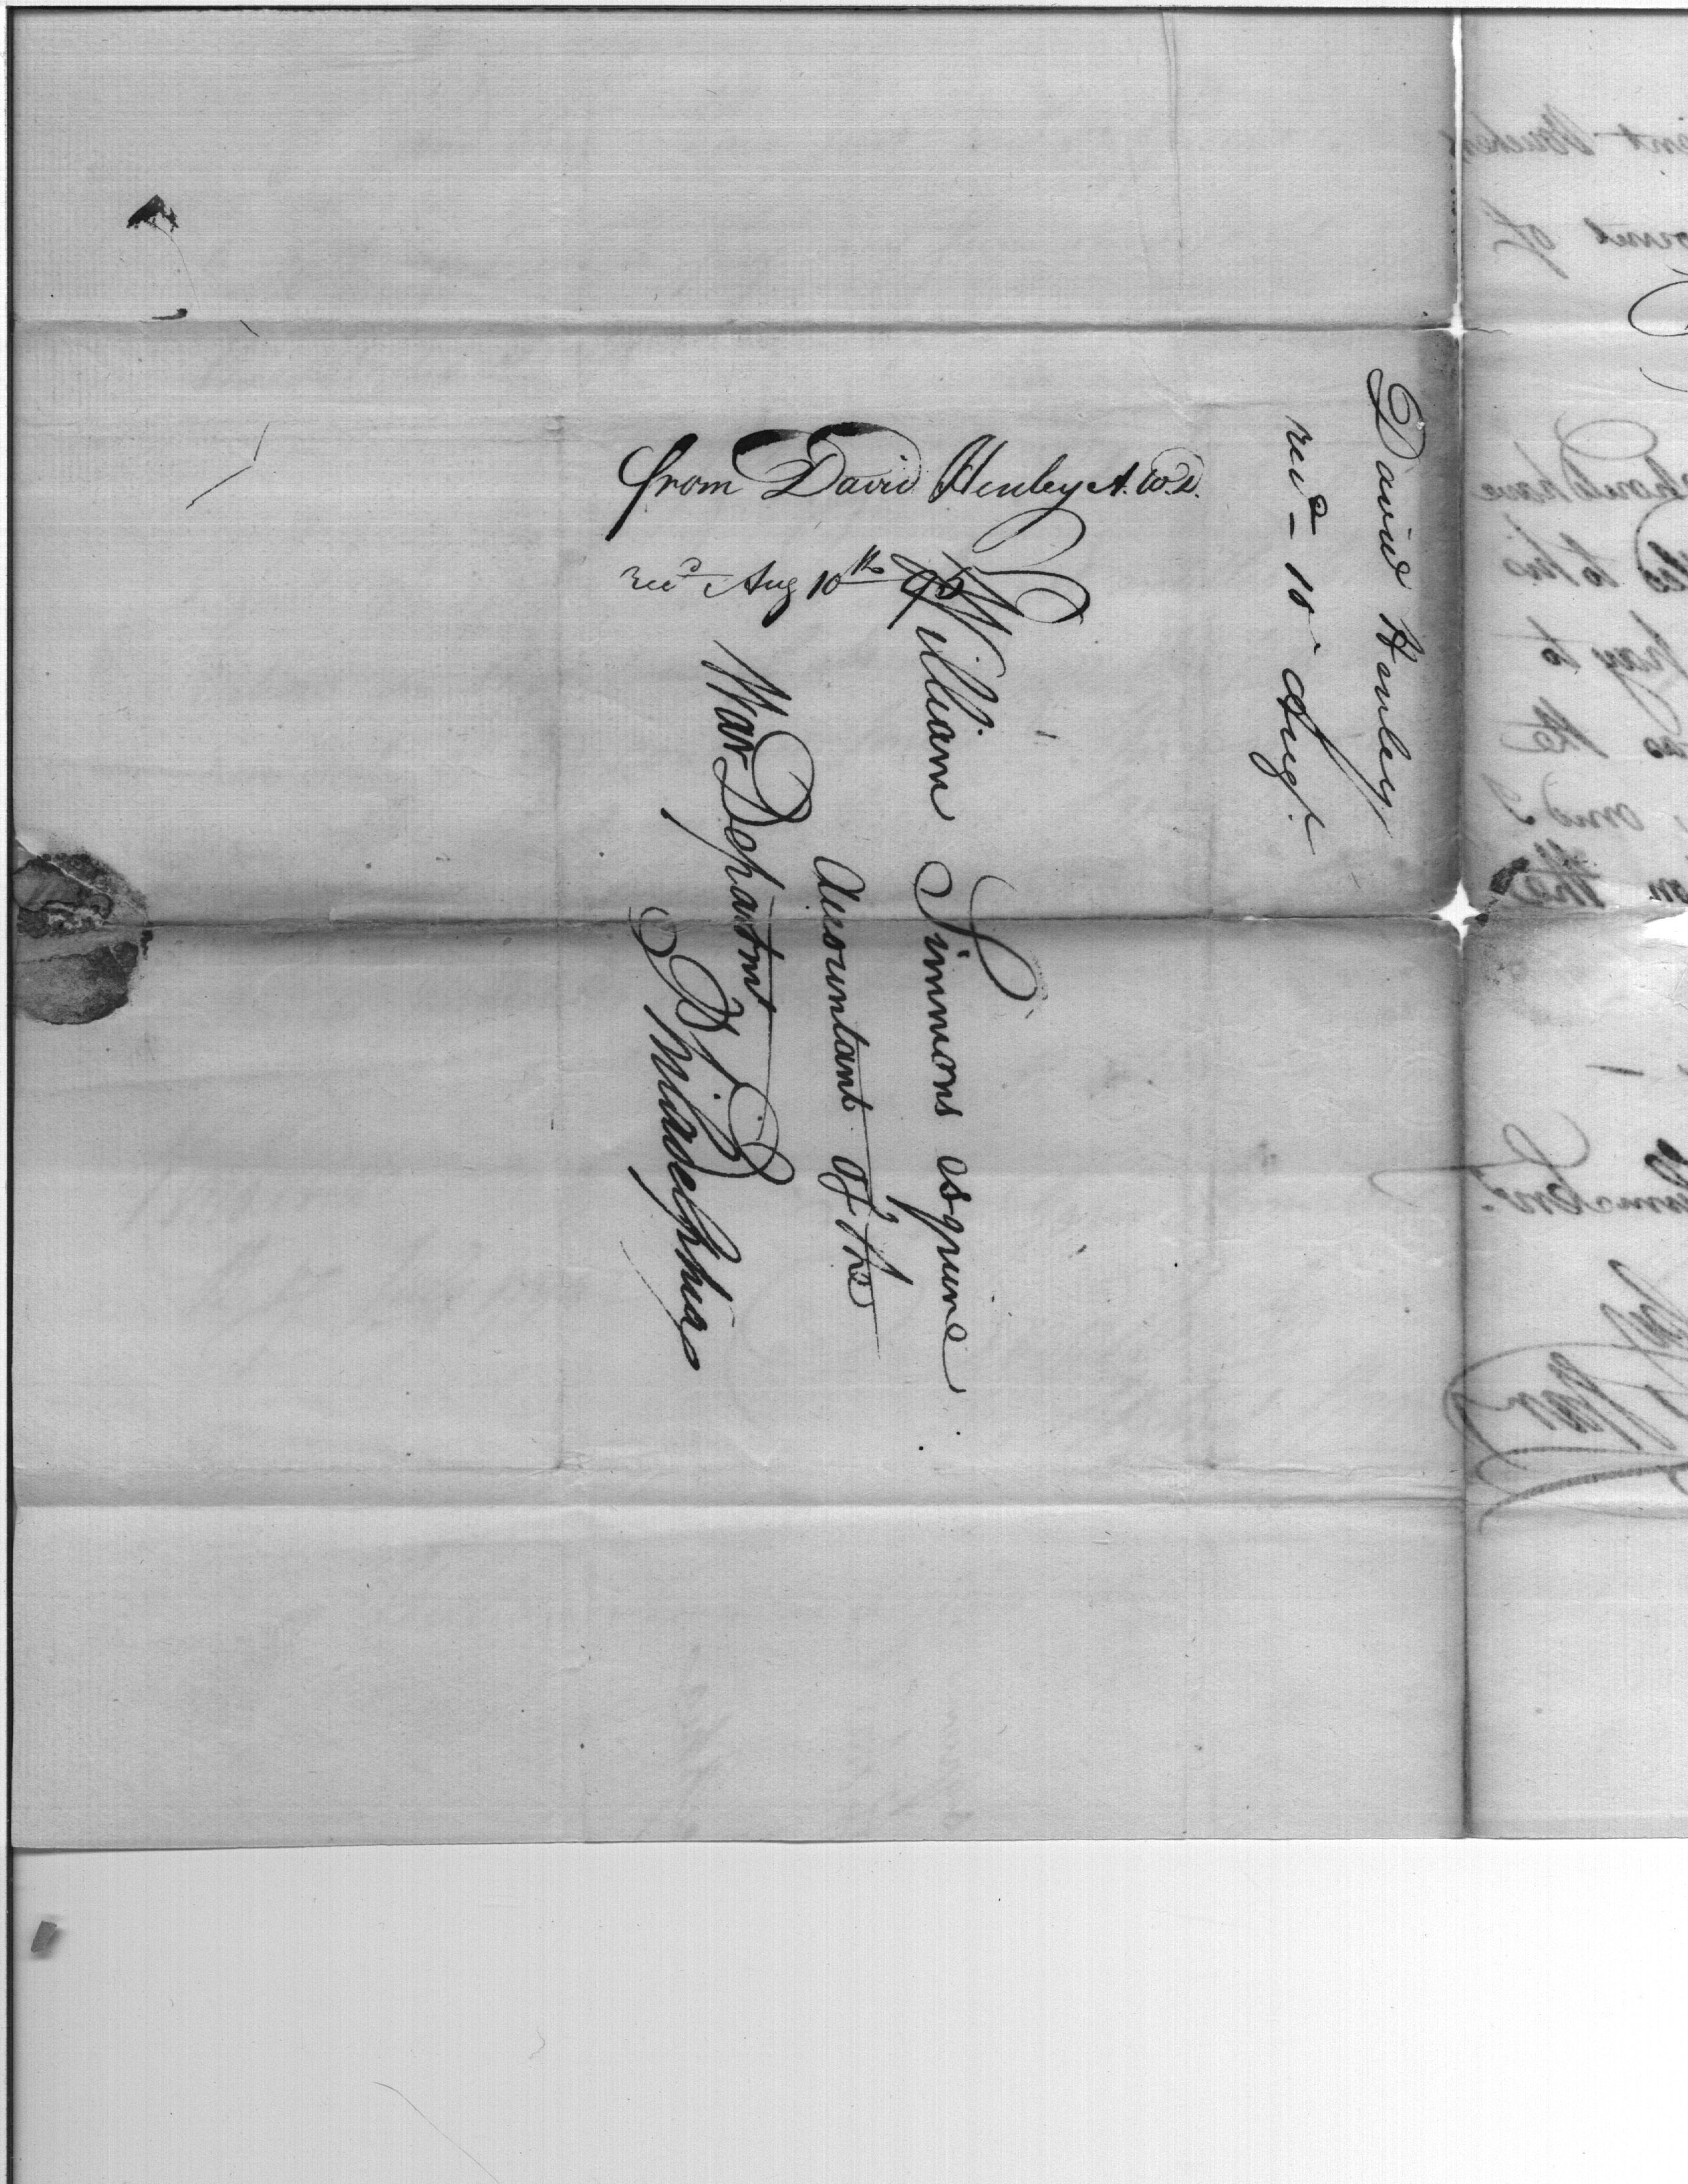 David Henley
recd - 10 Augt.
from David Henley A.W.D.
recd Aug 10th 95
William Simmons esquire
Accountant of the
War Departmt
Philadelphia